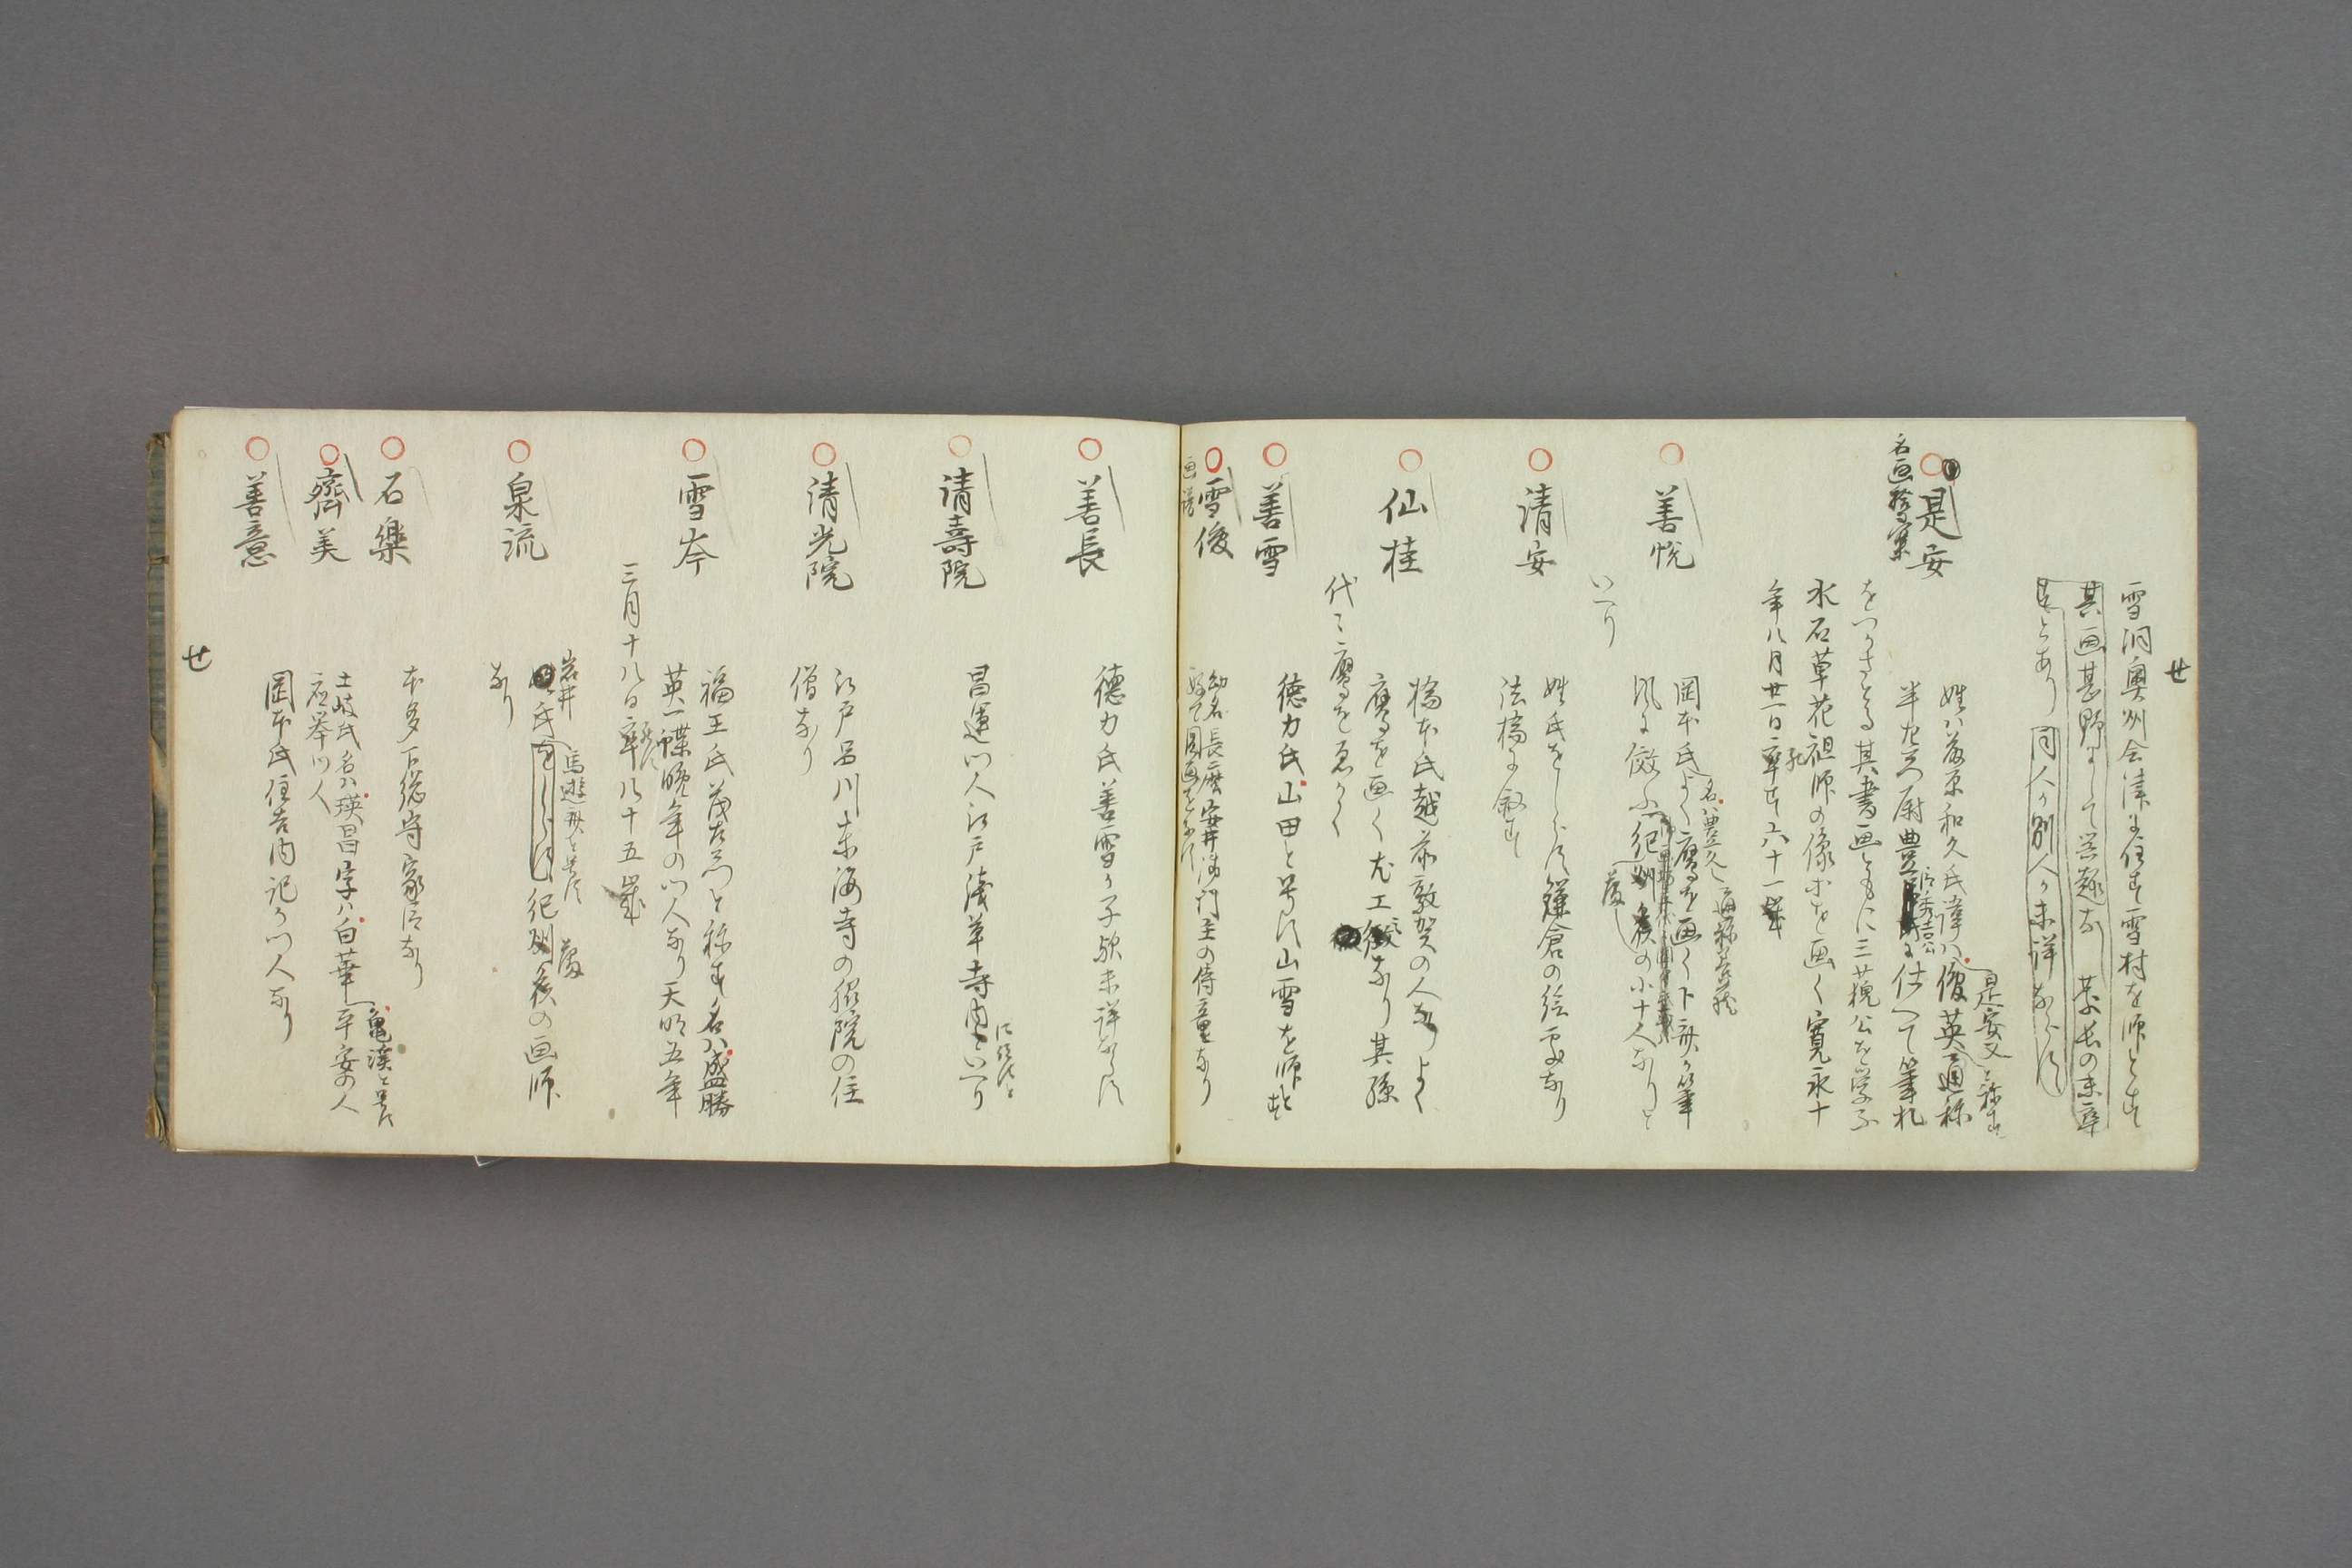 せ
雪洞奥州会津に住す雪村を師とす
其画甚野にして
とあり同人か別人か未詳ならす
是安
名画拾彙
姓ハ藤原和久氏諱ハ俊英通称
是安又と称す
半左衛門尉豊臣秀吉公に仕へて筆札
をつかさとる其書画ともに三藐公を学ふ
水石草花祖師の像等を画く寛永十
年八月廿一日卒す六十一歳
善悦
岡本氏よく鷹を画く卜斎か筆
名ハ豊久
風に倣ふ紀州侯の小十人なりと
いへり
清安
姓氏をしらす鎌倉の絵所なり
法橋に叙す
仙桂
橋本氏越前敦賀の人なりよく
鷹を画く尤工なり其孫
代々鷹をゑかく
善雪
徳力氏山田と号す山雪を師とす
雪俊
幼名長麿安井御門主の侍童なり
好て図画をなす
善長
徳力氏善雪か子歟未詳ならす
清壽院
昌運門人江戸浅草寺内といへり
に住すと
清光院
江戸品川東海寺の院の住
僧なり
雪岑
福王氏茂右衛門と称す名ハ盛勝
英一蝶晩年の門人なり天明五年
三月十八日卒八十五歳
泉流
岩井
氏をしらす紀州侯の画師
馬遊斎と号す
なり
石樂
本多下総守家臣なり
齊美
土岐氏名ハ瑛昌字ハ白華平安の人
亀渓と号す
応挙門人
善意
岡本氏住吉内記か門人なり
せ